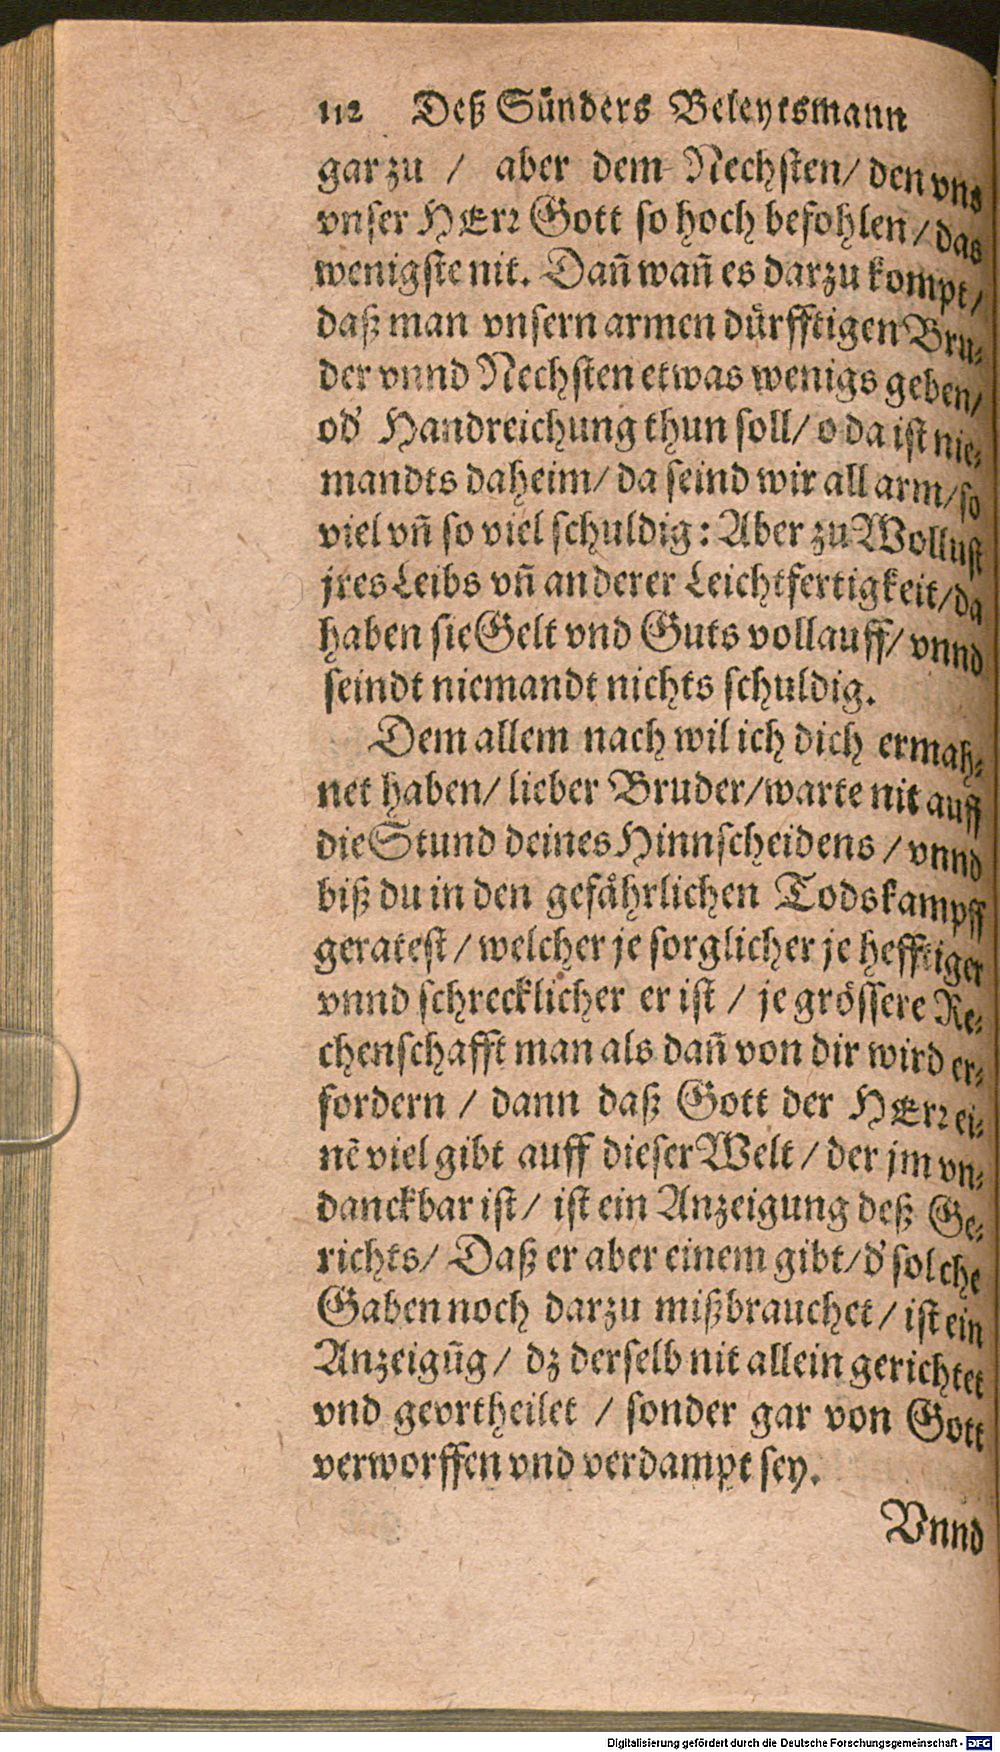 112 Deß Sünders Beleytsmann
gar zu / aber dem Nechsten/ den vns
vnser HErꝛ Gott so hoch befohlen/ das
wenigste nit. Dañ wañ es darzu kompt/
daß man vnsern armen dürfftigen Bru⸗
der vnnd Nechsten etwas wenigs geben/
od' Handreichung thun soll/ o da ist nie⸗
mandts daheim/ da seind wir all arm/ so
viel vñ so viel schuldig: Aber zu Wollust
jres Leibs vñ anderer Leichtfertigkeit/ da
haben sie Gelt vnd Guts vollauff/ vnnd
seindt niemandt nichts schuldig.
Dem allem nach wil ich dich ermah⸗
net haben/ lieber Bruder/ warte nit auff
die Stund deines Hinnscheidens / vnnd
biß du in den gefåhrlichen Todskampff
geratest / welcher je sorglicher je hefftiger
vnnd schrecklicher er ist / je grössere Re⸗
chenschafft man als dañ von dir wird er⸗
fordern / dann daß Gott der HErꝛ ei⸗
nẽ viel gibt auff dieser Welt / der jm vn⸗
danckbar ist/ ist ein Anzeigung deß Ge⸗
richts/ Daß er aber einem gibt/ d' solche
Gaben noch darzu mißbrauchet / ist ein
Anzeigũg / dz derselb nit allein gerichtet
vnd gevrtheilet / sonder gar von Gott
verworffen vnd verdampt sey.
Vnnd
Digitalisierung gefördert durch die Deutsche Forschungsgemeinschaft - DFG